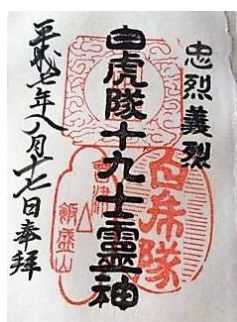 忠烈義烈
白虎隊十九士靈神
平成廿年八月十七日奉拝
白虎隊
會津
飯盛山